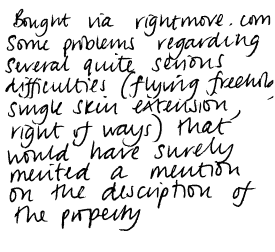 Bought via rightmove.com
Some problems regarding
several quite serious
difficulties (flying freehold,
single skin extension,
right of ways) that
would have surely
merited a mention
on the description of
the property